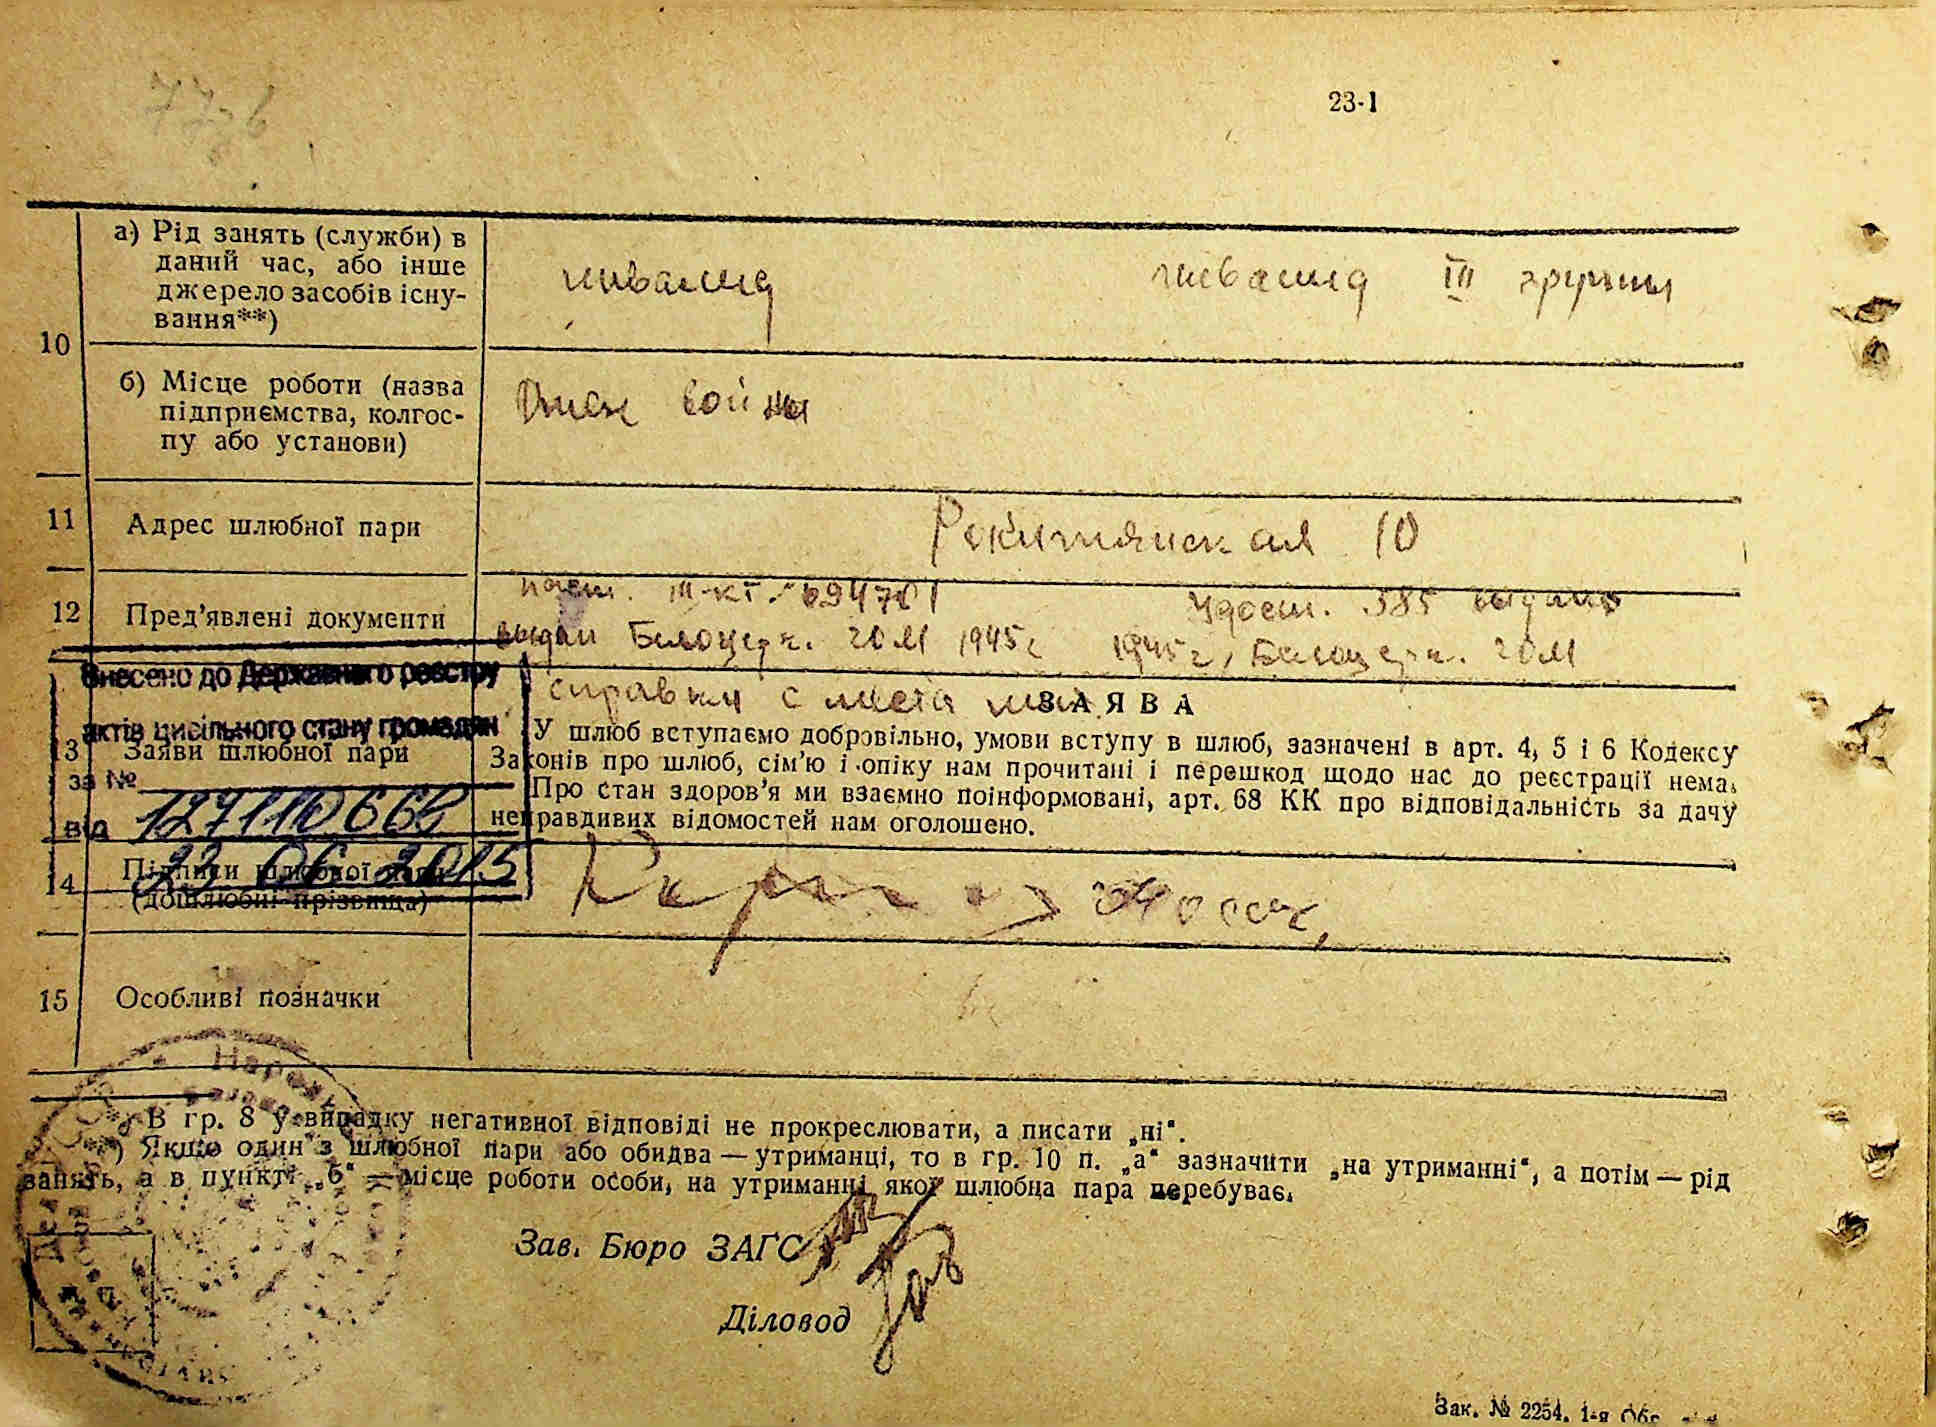 23-1
10
а) Рід занять (служби) в
даний час, або інше
джерело засобів існу-
вання**)
инвалид
инвалид III группы
б) Місце роботи (назва
підприємства, колгос-
пу або установи)
войны
11
Адрес шлюбної пари
Рокитянская 10
12
Пред'явлені документи
пасп. III-КГ
Удост. 385 выдано
выдан Белоцерк. ГОМ 1945г
1945г, Белоцерк. ГОМ
справки с места
Внесено до Державного реєстру
актів цивільного стану громадян
за №
127110668
від
23 06 2015
13
Заяви шлюбної пари
ЗАЯВА
У шлюб вступаємо добровільно, умови вступу в шлюб, зазначені в арт. 4, 5 і 6 Кодексу
Законів про шлюб, сім'ю і опіку нам прочитані і перешкод щодо нас до реєстрації нема.
Про стан здоров'я ми взаємно поінформовані, арт. 68 КК про відповідальність за дачу
неправдивих відомостей нам оголошено.
14
Підписи шлюбної пари
(дошлюбні прізвища)
15
Особливі позначки
*) В гр. 8 у випадку негативної відповіді не прокреслювати, а писати „ні“.
**) Якщо один з шлюбної пари або обидва — утриманці, то в гр. 10 п. „а“ зазначити „на утриманні“, а потім — рід
занять, а в пункті „б“ — місце роботи особи, на утриманні якої шлюбна пара перебуває.
Зав. Бюро ЗАГС
Діловод
Зак. № 2254. 1-я Обр.